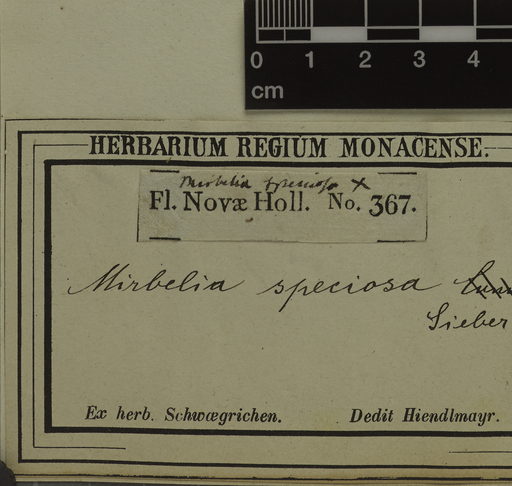 0 1 2 3 4
cm
HERBARIUM REGIUM MONACENSE.
Mirbelia speciosa ×
Fl. Novæ Holl. No. 367.
Mirbelia speciosa
Sieber
Ex herb. Schwægrichen. Dedit Hiendlmayr.